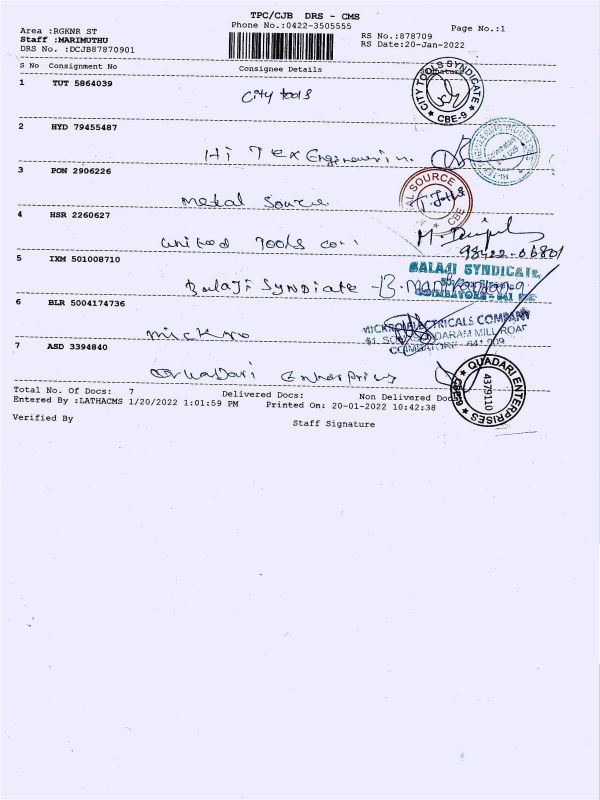 TPC/CJB DRS - CMS
Area :RGKNR ST
Phone No.:0422-3505555
Page No.:1
Staff :MARIMUTHU
RS No.:878709
DRS No. :DCJB87870901
RS Date:20-Jan-2022
S No Consignment No Consignee Details Signature
1 TUT 5864039
City tools
CITY TOOLS SYNDICATE
★ CBE-9 ★
2 HYD 79455487
Hi Tex
3 PON 2906226
metal source
AL SOURCE
CBE
4 HSR 2260627
united Tools
98422-06801
5 IXM 501008710
BalaJi Syndiate
BALAJI SYNDICATE
6 BLR 5004174736
ELECTRICALS COMPANY
MILL ROAD
COIMBATORE - 641 009
7 ASD 3394840
Quadari Enterprises
★ QUADARI ENTERPRISES ★
4379110
Total No. Of Docs: 7 Delivered Docs: Non Delivered Docs
Entered By :LATHACMS 1/20/2022 1:01:59 PM Printed On: 20-01-2022 10:42:38
Verified By
Staff Signature